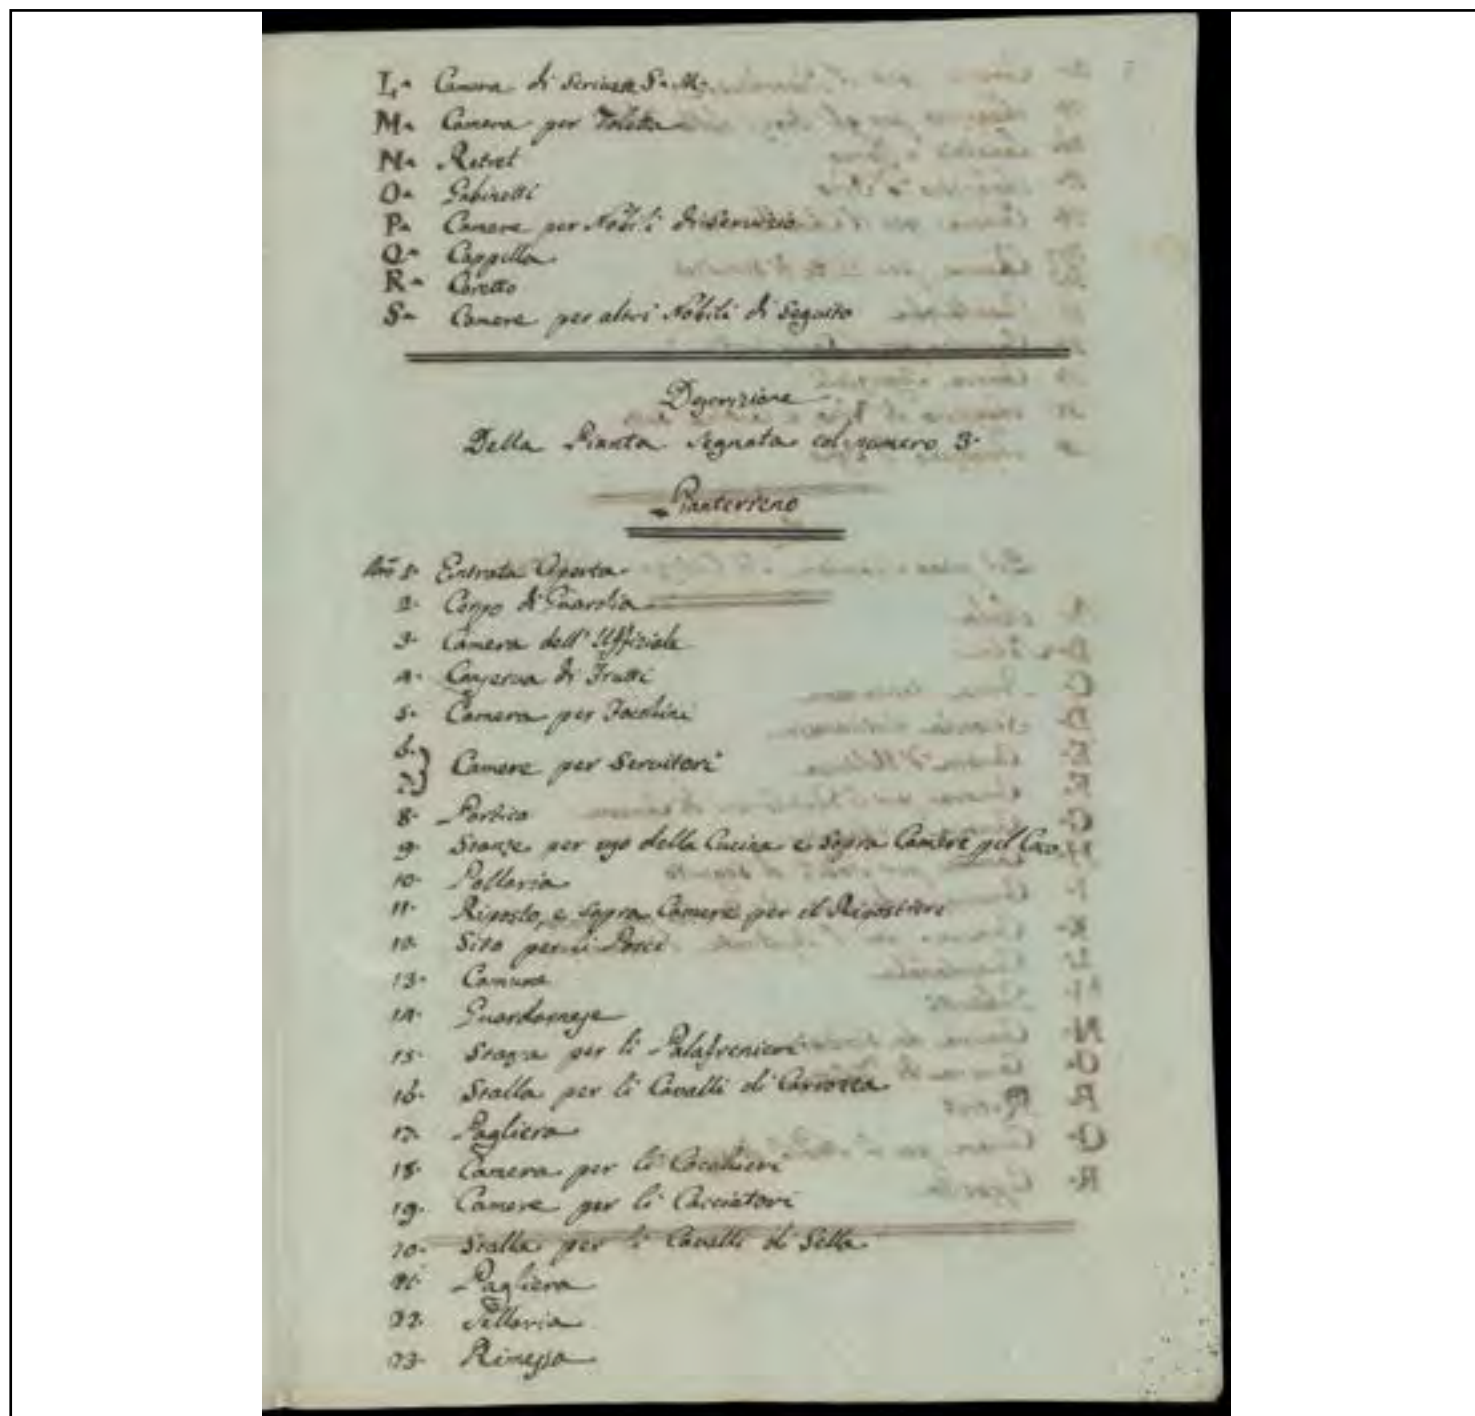 L. Camera di scrivere S. M.
M. Camera per Toletta
N. Retret
O. Gabinetti
P. Camere per Nobili di Servizio
Q. Cappella
R. Coretto
S. Camere per altri Nobili di Seguito
Descrizione
Della Pianta Segnata col numero 3.
Pianterreno
1. Entrata Aperta
2. Corpo di Guardia
3. Camera dell'Uffiziale
4. Conserva di Frutti
5. Camera per Facchini
6.
7. Camere per Servitori
8. Portico
9. Stanze per uso della Cucina e sopra Camere pel Coco
10. Pollaria
11. Riposto, e sopra Camere per il Ripostiere
12. Sito per li Porci
13. Comune
14. Guardarnese
15. Stanza per li Palafrenieri
16. Stalla per li Cavalli di Carrozza
17. Pagliera
18. Camera per li Cocchieri
19. Camere per li Cacciatori
20. Stalla per li Cavalli di Sella
21. Pagliera
22. Sellaria
23. Rimessa